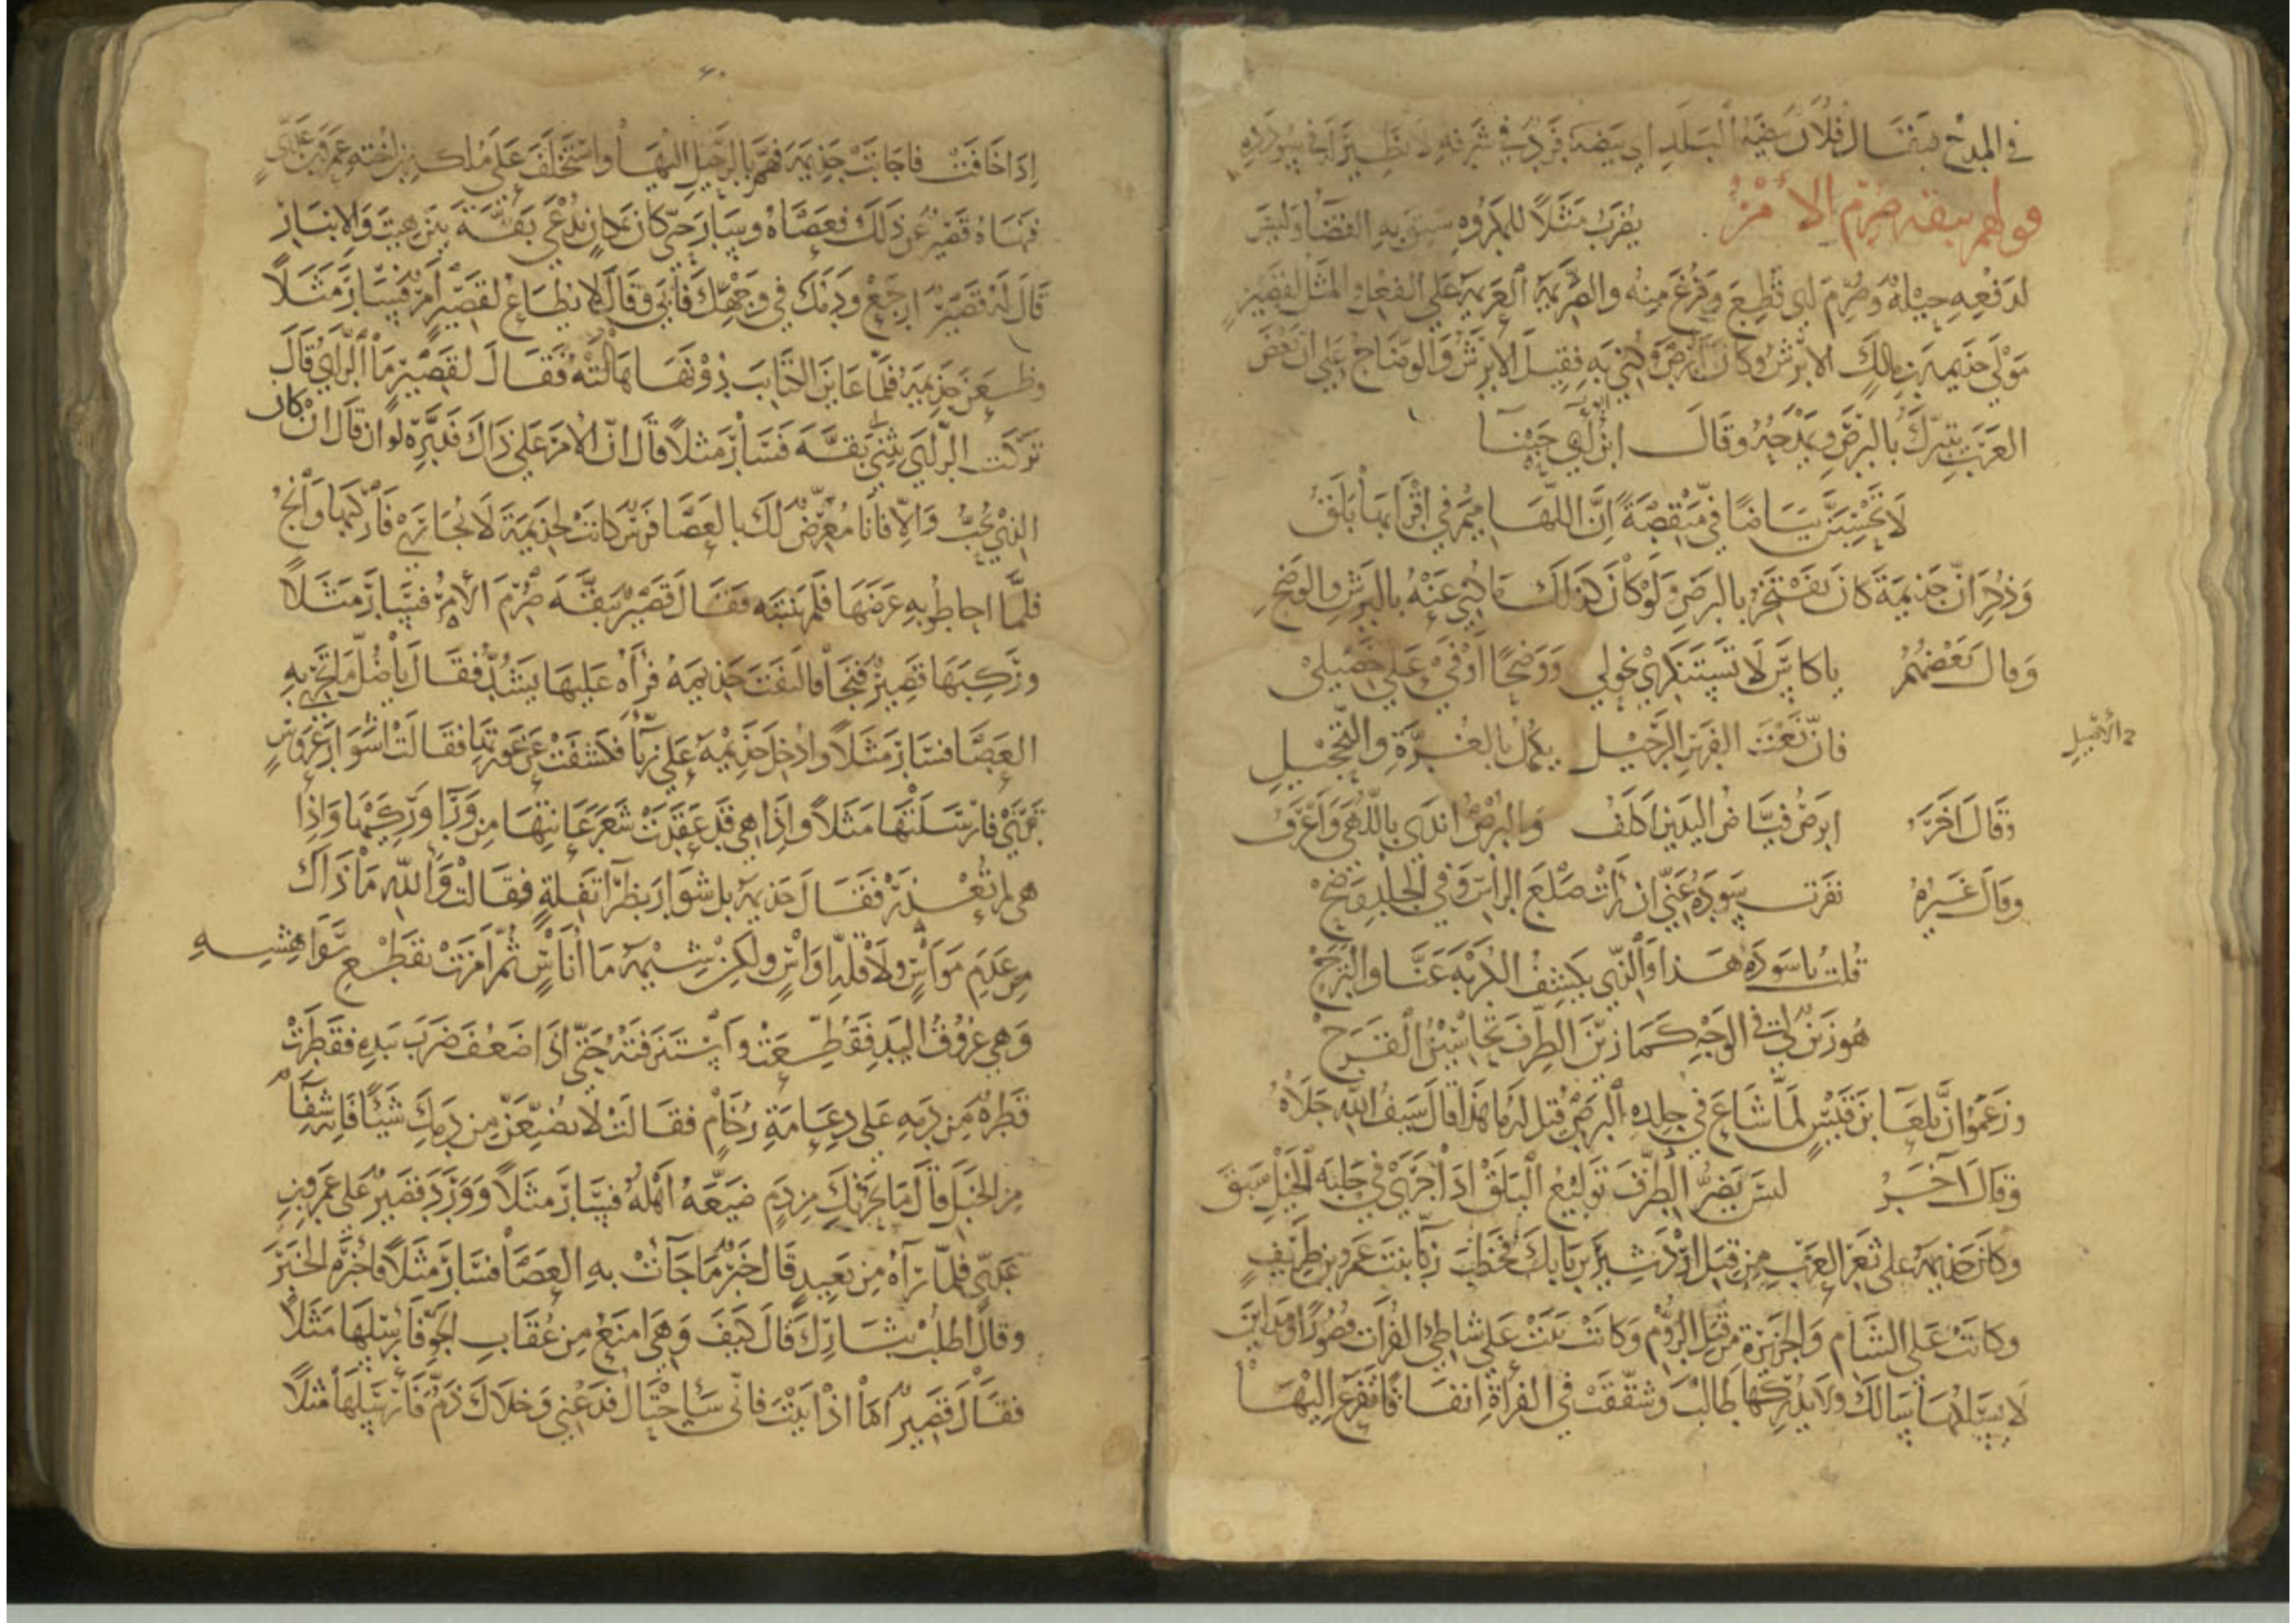 في المدح فيقال فلان بيضة البلد اي بيضة فرد في شرفه لا نظير له في سودده
قولهم ببقة صرم الأمر
يضرب مثلا للمكروه سبق به القضاء وليس
لدفعه حيلة وصرم اي قطع وفرغ منه والصريمة العزيمة على الفعل والمثل لقصير
مولى جذيمة بن مالك الابرش وكان ابرص وكني به فقيل الابرش والوضاح على ان بعض
العرب تتبرك بالبرص ويمدحه وقال ابن ابي حبنا
لا تحسبن بياضا في منقصة ان اللهاميم في اقرابها بلق
وذكر ان جذيمة كان يفتخر بالبرص ولو كان كذلك ما كني عنه بالبرش والوضح
وقال بعضهم يا كاس لا تستنكري نحولي ووضحا اوفى على خصيلي
فان نعت الفرس الرجيل يكمل بالغرة والتحجيل
وقال اخر ابرص فياض اليدين اكلف والبرص اندى باللهى واعرف
وقال غيره نفرت سودة عني ان رات صلع الراس وفي الجلد وضح
قلت يا سودة هذا والذي يكشف الكربة عنا والترح
هو زين لي في الوجه كما زين الطرف تحاسين القرح
وزعموا ان بلعا بن قيس لما شاع في جلده البرص قيل له ما هذا قال سيف الله جلاه
وقال آخر ليس يضر الطرف توليع البلق اذا جرى في حلبة الخيل سبق
وكان جذيمة على ثغر العرب من قبل اردشير بن بابك فخطب زبا بنت عمرو بن ظريف
وكانت على الشام والجزيرة من قبل الروم وكانت بنت على شاطئ الفرات قصورا ومداين
لا يسلكها سالك ولا يدركها طالب وشققت في الفراة انفاقا تفزع اليها
اذا خافت فاجابت جذيمة فهم بالرحيل اليها واستخلف على ملكه بن اخته عمرو بن عدي
فنهاه قصير عن ذلك فعصاه وسار حتى كان بمكان يدعى بقة بين هيت والانبار
قال له قصير ارجع ودمك في وجهك فابى وقال لا يطاع لقصير امر فسار مثلا
وظعن جذيمة فلما عاين الكتايب دونها هالته فقال لقصير ما الراي قال
تركت الراي ثنى بقة فسار مثلا قال ان الامر على ذاك فدبره لوان قال ان كان
الذي تحب والا فانا معرض لك بالعصا فرس كانت لجذيمة لا تجارى فاركبها وانج
فلما احاطوا به عرضها فلم ينتبه فقال قصير ببقة صرم الأمر فسار مثلا
وركبها قصير فنجا فالتفت جذيمة فرآه عليها يشتد فقال يا ضل ما تجري به
العصا فسار مثلا وادخل جذيمة على زبا فكشفت عن عورتها فقالت اشوار عروس
ترى فارسلتها مثلا واذا هي قد عقدت شعر عانتها من ورا وركيها واذا
هي لم تعذر فقال جذيمة بل شوار بظرا تفلة فقالت والله ما ذاك
من عدم مواس ولا قلة اواس ولكن شيمة ما اناس ثم امرت بقطع رواهشه
وهي عروق اليد فقطعت واستنزفته حتى اذا ضعف ضرب بيده فقطرت
قطرة من دمه على دعامة رخام فقالت لا تضيعن من دمك شيئا فانه شفا
من الخبل قال ما يحزنك من دم ضيعه اهله فسار مثلا وورد قصير على عمرو بن
عدي فلما رآه من بعيد قال خبر ما جآت به العصا فسار مثلا فاخبره الخبر
وقال اطلب بثارك قال كيف وهي امنع من عقاب الجو فارسلها مثلا
فقال قصير اما اذ ابيت فاني ساحتال فدعني وخلاك ذم فارسلها مثلا